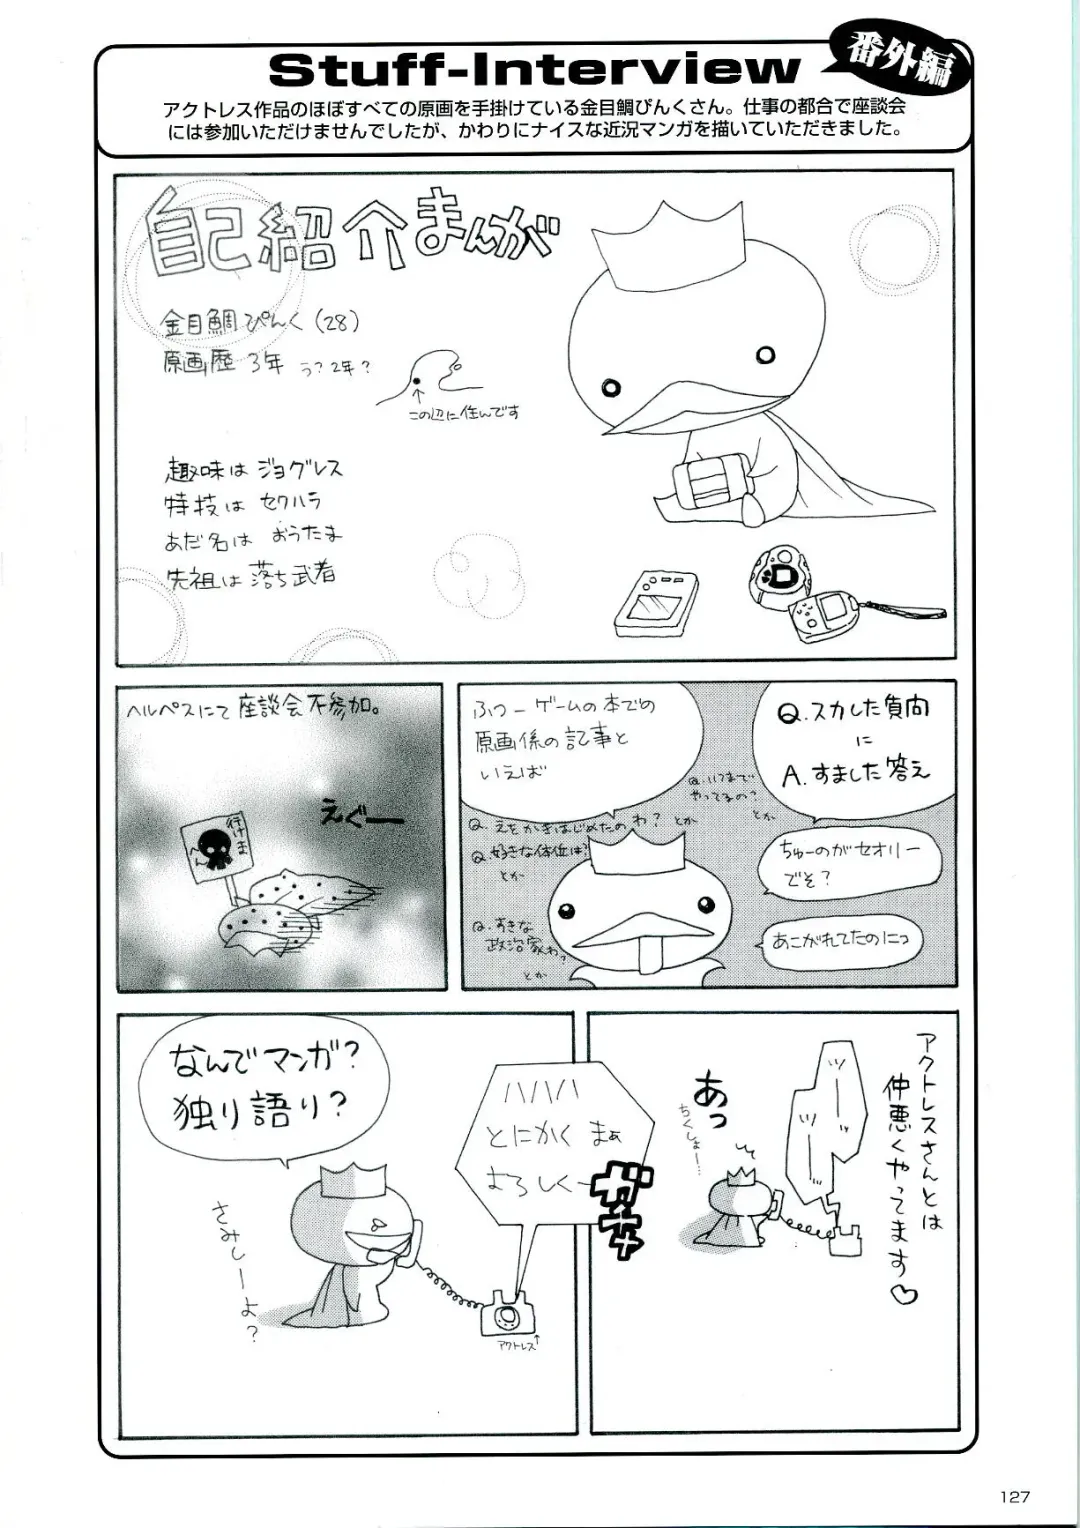 Stuff-Interview
番外編
アクトレス作品のほぼすべての原画を手掛けている金目鯛ぴんくさん。仕事の都合で座談会
には参加いただけませんでしたが、かわりにナイスな近況マンガを描いていただきました。
自己紹介まんが
金目鯛ぴんく(28)
原画歴 3年 う?2年?
この辺に住んです
趣味は ジョグレス
特技は セクハラ
あだ名は おうたま
先祖は 落ち武者
ヘルペスにて座談会不参加。
えぐー
行けま
へん
ふつーゲームの本での
原画係の記事と
いえば
Q.スカした質問
に
A.すました答え
Q.いつまで
やってるの?
とか
Q.えをかきはじめたのわ?とか
Q.好きな体位は?
とか
Q.すきな
政治家わ?
とか
ちゅーのがセオリー
でそ?
あこがれてたのにっ
なんでマンガ?
独り語り?
ハハハハ
とにかくまぁ
よろしくー
ガチャ
さみしーよ?
アクトレス↑
アクトレスさんとは
仲悪くやってます♡
ツー
ツー
あっ
ちくしょー…
127